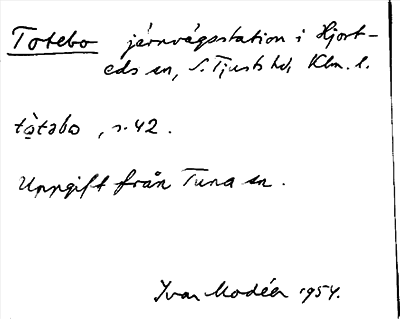 Totebo järnvägsstation i Hjort-
eds sn, S. Tjusts hd, Klm. l.
tòtabo, s. 42.
Uppgift från Tuna sn.
Ivar Modéer 1954.